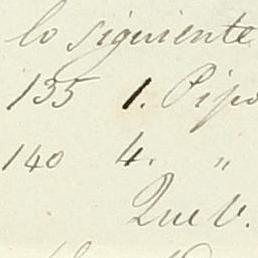 lo siguiente
135 1. Pipo
140 4. "
Que V.